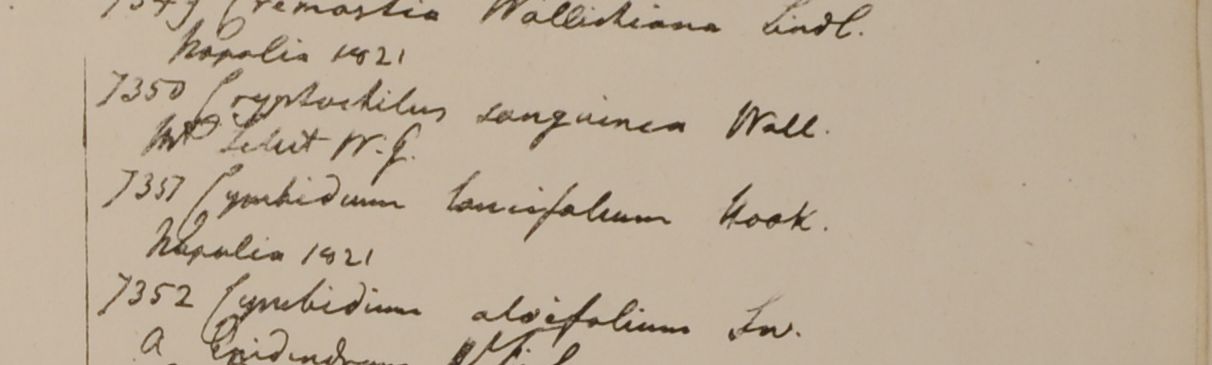 7349 Cremastra Wallichiana Lindl.
Napalia 1821
7350 Cryptochilus sanguinea Wall.
Mt Silhet W. G.
7351 Cymbidium lancifolium Hook.
Napalia 1821
7352 Cymbidium aloifolium Sw.
a Epidendrum